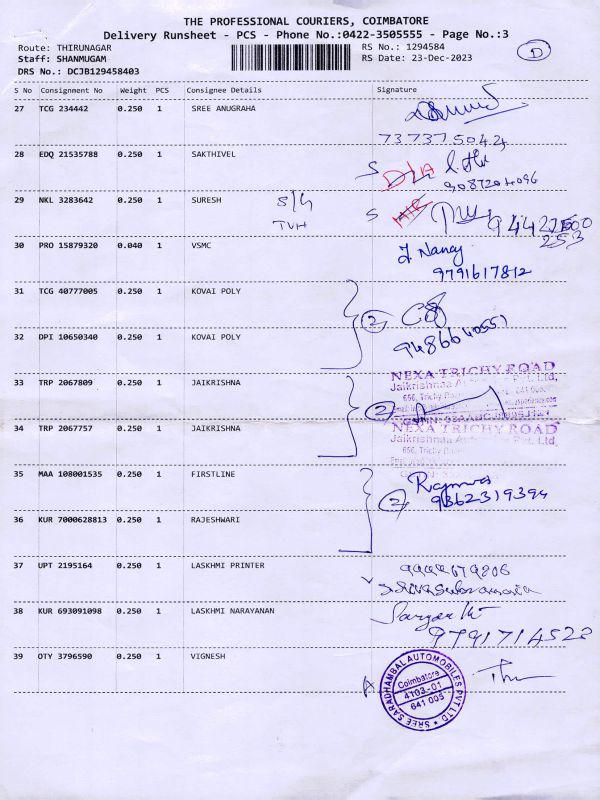 THE PROFESSIONAL COURIERS, COIMBATORE
Delivery Runsheet - PCS - Phone No.:0422-3505555 - Page No.:3
Route: THIRUNAGAR
RS No.: 1294584
D
Staff: SHANMUGAM
RS Date: 23-Dec-2023
DRS No.: DCJB129458403
S No Consignment No Weight PCS Consignee Details Signature
27 TCG 234442 0.250 1 SREE ANUGRAHA
737375042
28 EDQ 21535788 0.250 1 SAKTHIVEL
S
9087204096
29 NKL 3283642 0.250 1 SURESH
S/G
TVH
S
30 PRO 15879320 0.040 1 VSMC
J Nancy
9791617812
31 TCG 40777005 0.250 1 KOVAI POLY
2
32 DPI 10650340 0.250 1 KOVAI POLY
33 TRP 2067809 0.250 1 JAIKRISHNA
NEXA TRICHY ROAD
656, Trichy
2
34 TRP 2067757 0.250 1 JAIKRISHNA
NEXA TRICHY ROAD
Pvt. Ltd.
656, Trichy
35 MAA 108001535 0.250 1 FIRSTLINE
2
9362319394
36 KUR 7000628813 0.250 1 RAJESHWARI
37 UPT 2195164 0.250 1 LASKHMI PRINTER
38 KUR 693091098 0.250 1 LASKHMI NARAYANAN
9791714523
39 OTY 3796590 0.250 1 VIGNESH
SREE SARADHAMBAL AUTOMOBILES PVT LTD
Coimbatore
4103-01
641 005